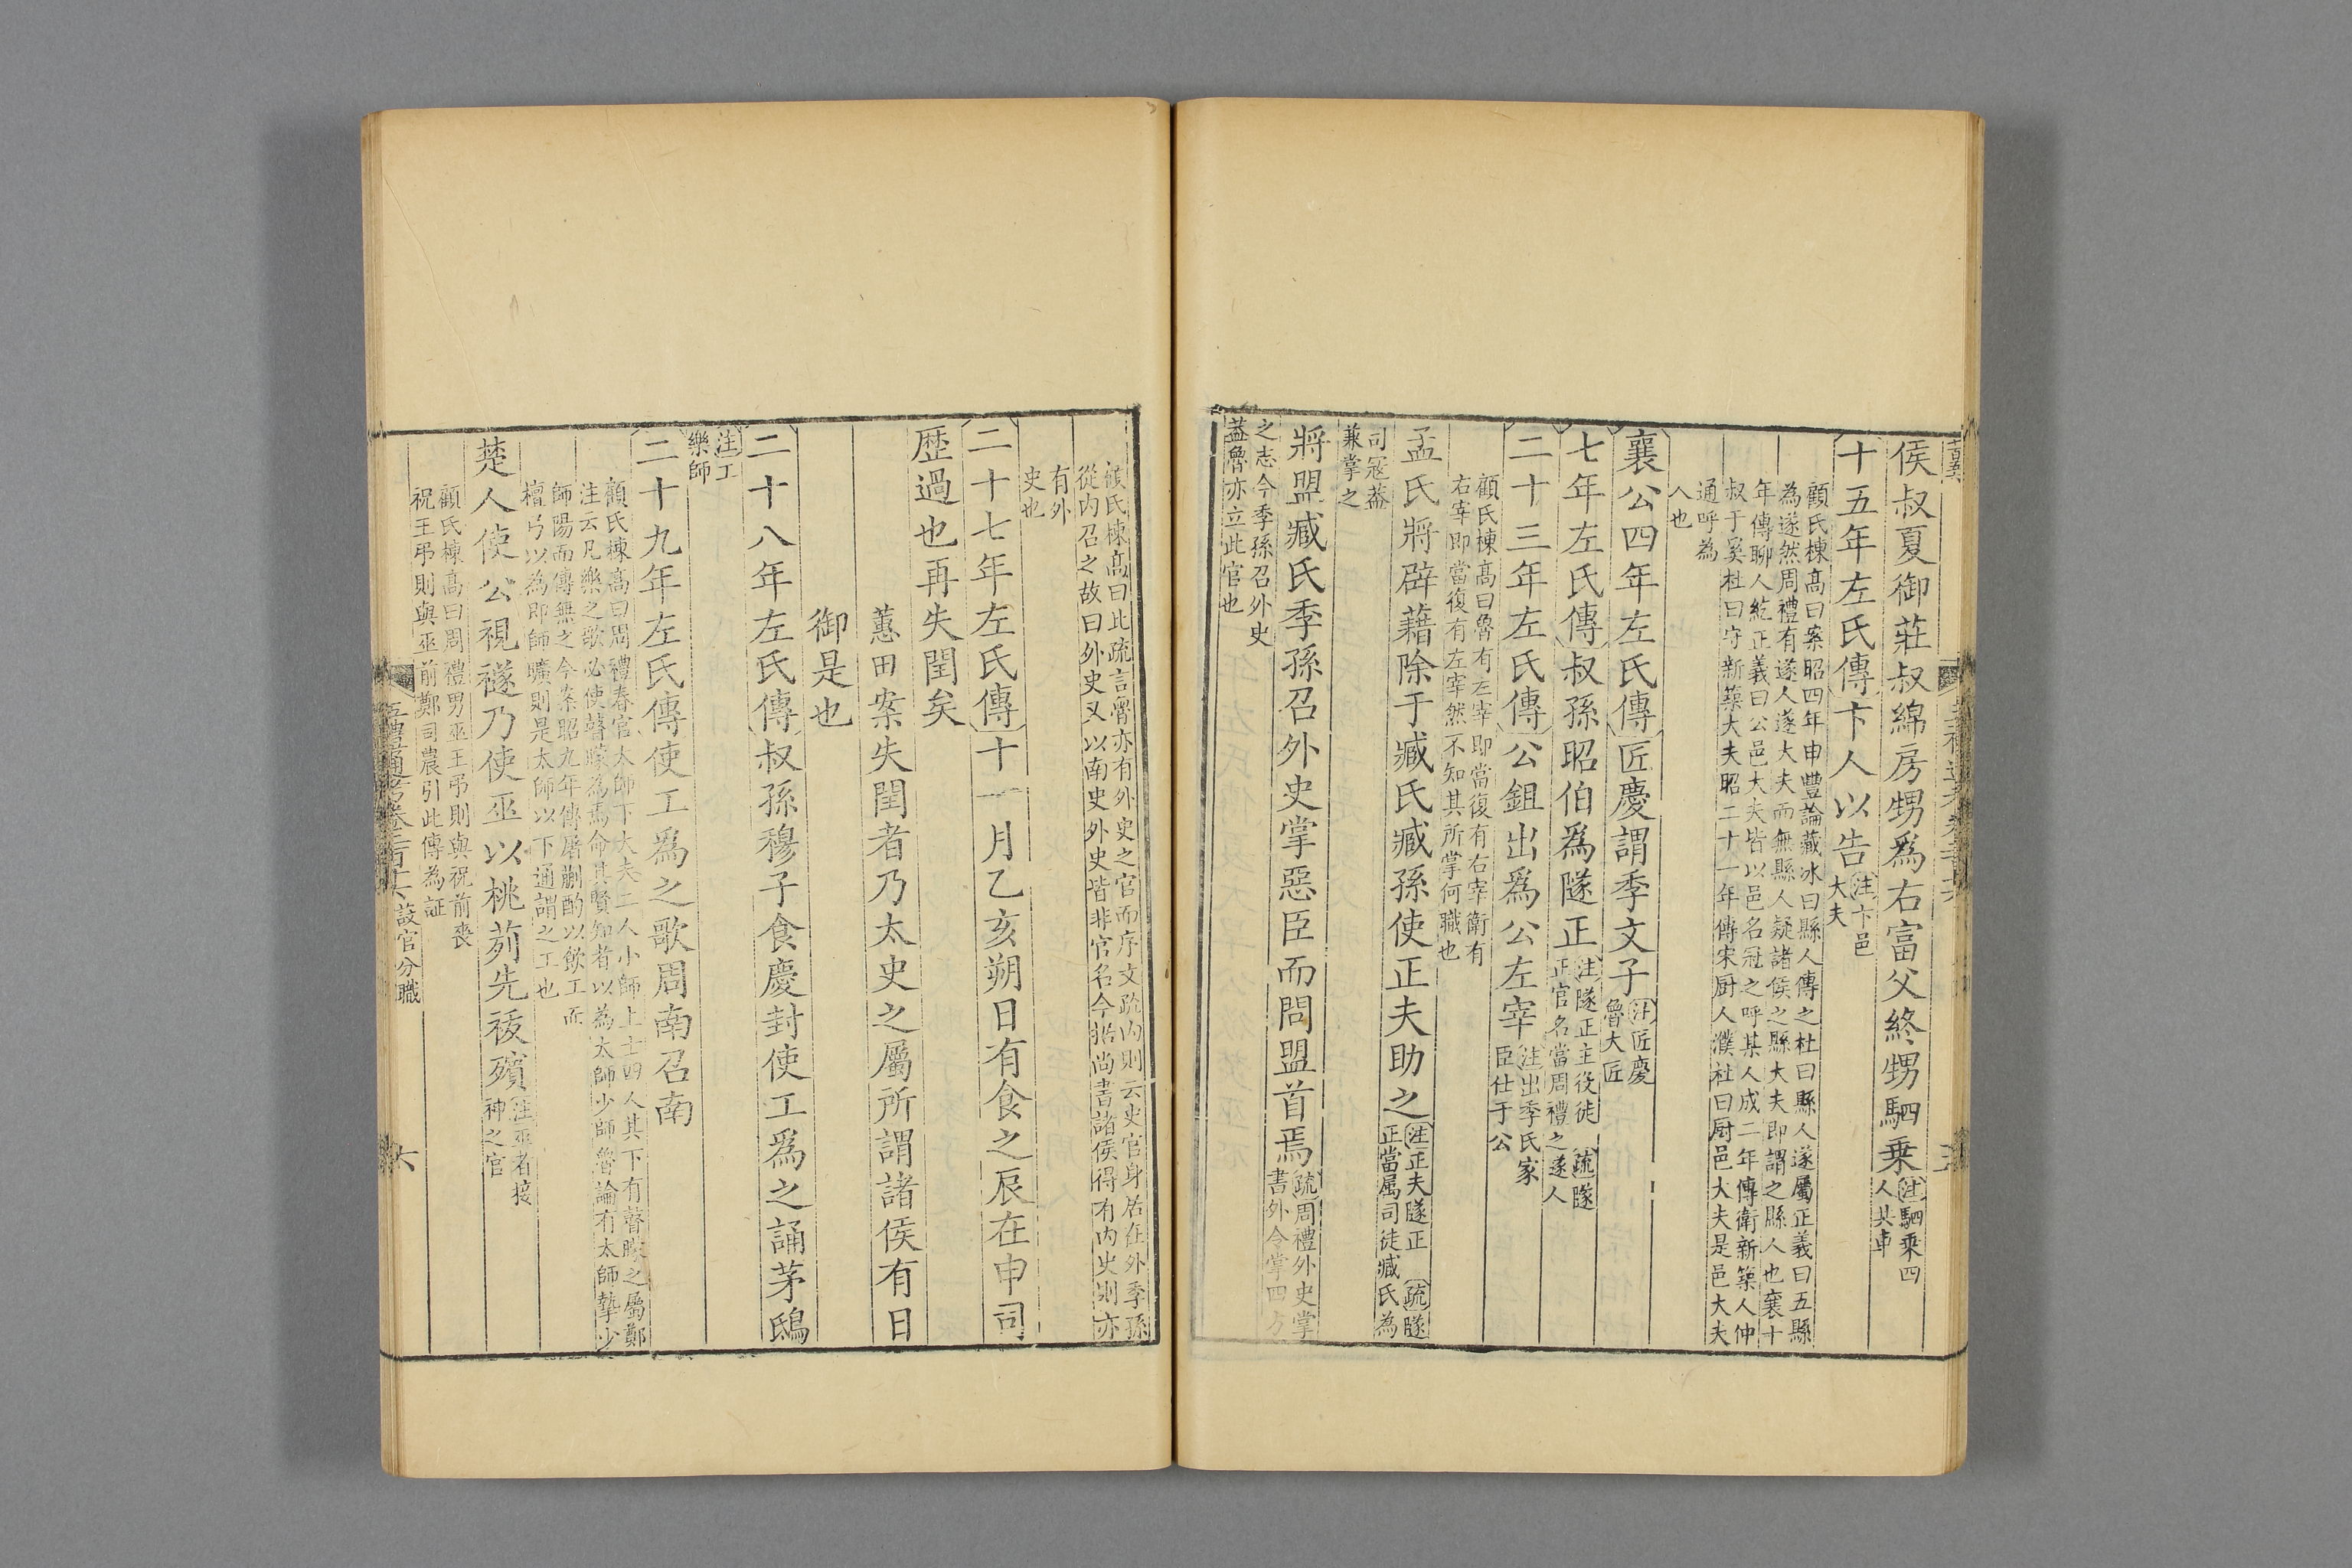 侯叔夏御莊叔綿房甥爲右富父終甥駟乗注駟乗四
人共車
十五年左氏傳卞人以告注卞邑
大夫
顧氏棟高曰案昭四年申豐論藏冰曰縣人傳之杜曰縣人遂屬正義曰五縣
為遂然周禮有遂人遂大夫而無縣人疑諸侯之縣大夫即謂之縣人也襄十
年傳聊人紇正義曰公邑大夫皆以邑名冠之呼某人成二年傳衛新築人仲
叔于奚杜曰守新築大夫昭二十一年傳宋厨人濮杜曰厨邑大夫是邑大夫
通呼為
人也
襄公四年左氏傳匠慶謂季文子注匠慶
魯大匠
七年左氏傳叔孫昭伯爲隧正注隧正主役徒 疏隧
正官名當周禮之遂人
二十三年左氏傳公鉏出爲公左宰注出季氏家
臣仕于公
顧氏棟高曰魯有左宰即當復有右宰衛有
右宰即當復有左宰然不知其所掌何職也
孟氏將辟藉除于臧氏臧孫使正夫助之注正夫隧正 疏隧
正當屬司徒臧氏為
司寇葢
兼掌之
將盟臧氏季孫召外史掌惡臣而問盟首焉疏周禮外史掌
書外令掌四方
之志今季孫召外史
葢魯亦立此官也
顧氏棟高曰此疏言魯亦有外史之官而序文疏內則云史官身居在外季孫
從內召之故曰外史又以南史外史皆非官名今據尚書諸侯得有內史則亦
有外
史也
二十七年左氏傳十一月乙亥朔日有食之辰在申司
歴過也再失閏矣
蕙田案失閏者乃太史之屬所謂諸侯有日
御是也
二十八年左氏傳叔孫穆子食慶封使工爲之誦茅鴟
注工
樂師
二十九年左氏傳使工爲之歌周南召南
顧氏棟高曰周禮春官太師下大夫二人小師上士四人其下有瞽矇之屬鄭
注云凡樂之歌必使瞽矇為焉命其賢知者以為太師少師魯論有太師摯少
師陽而傳無之今案昭九年傳屠蒯酌以飲工而
檀弓以為即師曠則是太師以下通謂之工也
楚人使公視襚乃使巫以桃茢先祓殯注巫者接
神之官
顧氏棟高曰周禮男巫王弔則與祝前喪
祝王弔則與巫前鄭司農引此傳為証
五禮通考卷二百十六 設官分職
六